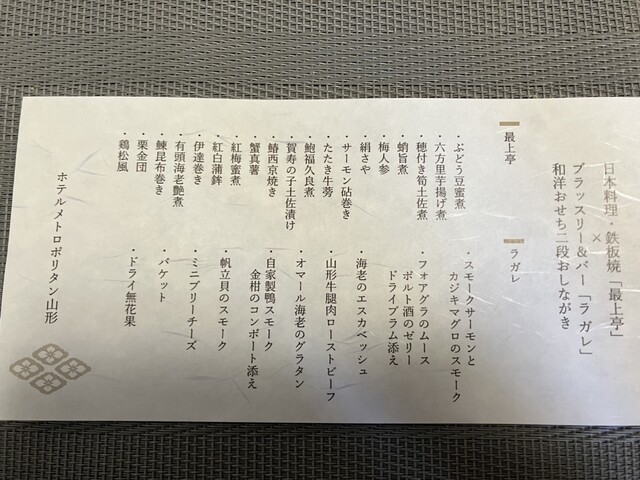 日本料理・鉄板焼「最上亭」
×
ブラッスリー&バー「ラ ガレ」
和洋おせち二段おしながき
最上亭
・ぶどう豆蜜煮
・六方里芋揚げ煮
・穂付き筍土佐煮
・蛸旨煮
・梅人参
・絹さや
・サーモン砧巻き
・たたき牛蒡
・鮑福久良煮
・賀寿の子土佐漬け
・鰆西京焼き
・蟹真薯
・紅梅蜜煮
・紅白蒲鉾
・伊達巻き
・有頭海老艶煮
・鰊昆布巻き
・栗金団
・鶏松風
ラガレ
・スモークサーモンと
カジキマグロのスモーク
・フォアグラのムース
ポルト酒のゼリー
ドライプラム添え
・海老のエスカベッシュ
・山形牛腿肉ローストビーフ
・オマール海老のグラタン
・自家製鴨スモーク
金柑のコンポート添え
・帆立貝のスモーク
・ミニブリーチーズ
・バケット
・ドライ無花果
ホテルメトロポリタン山形